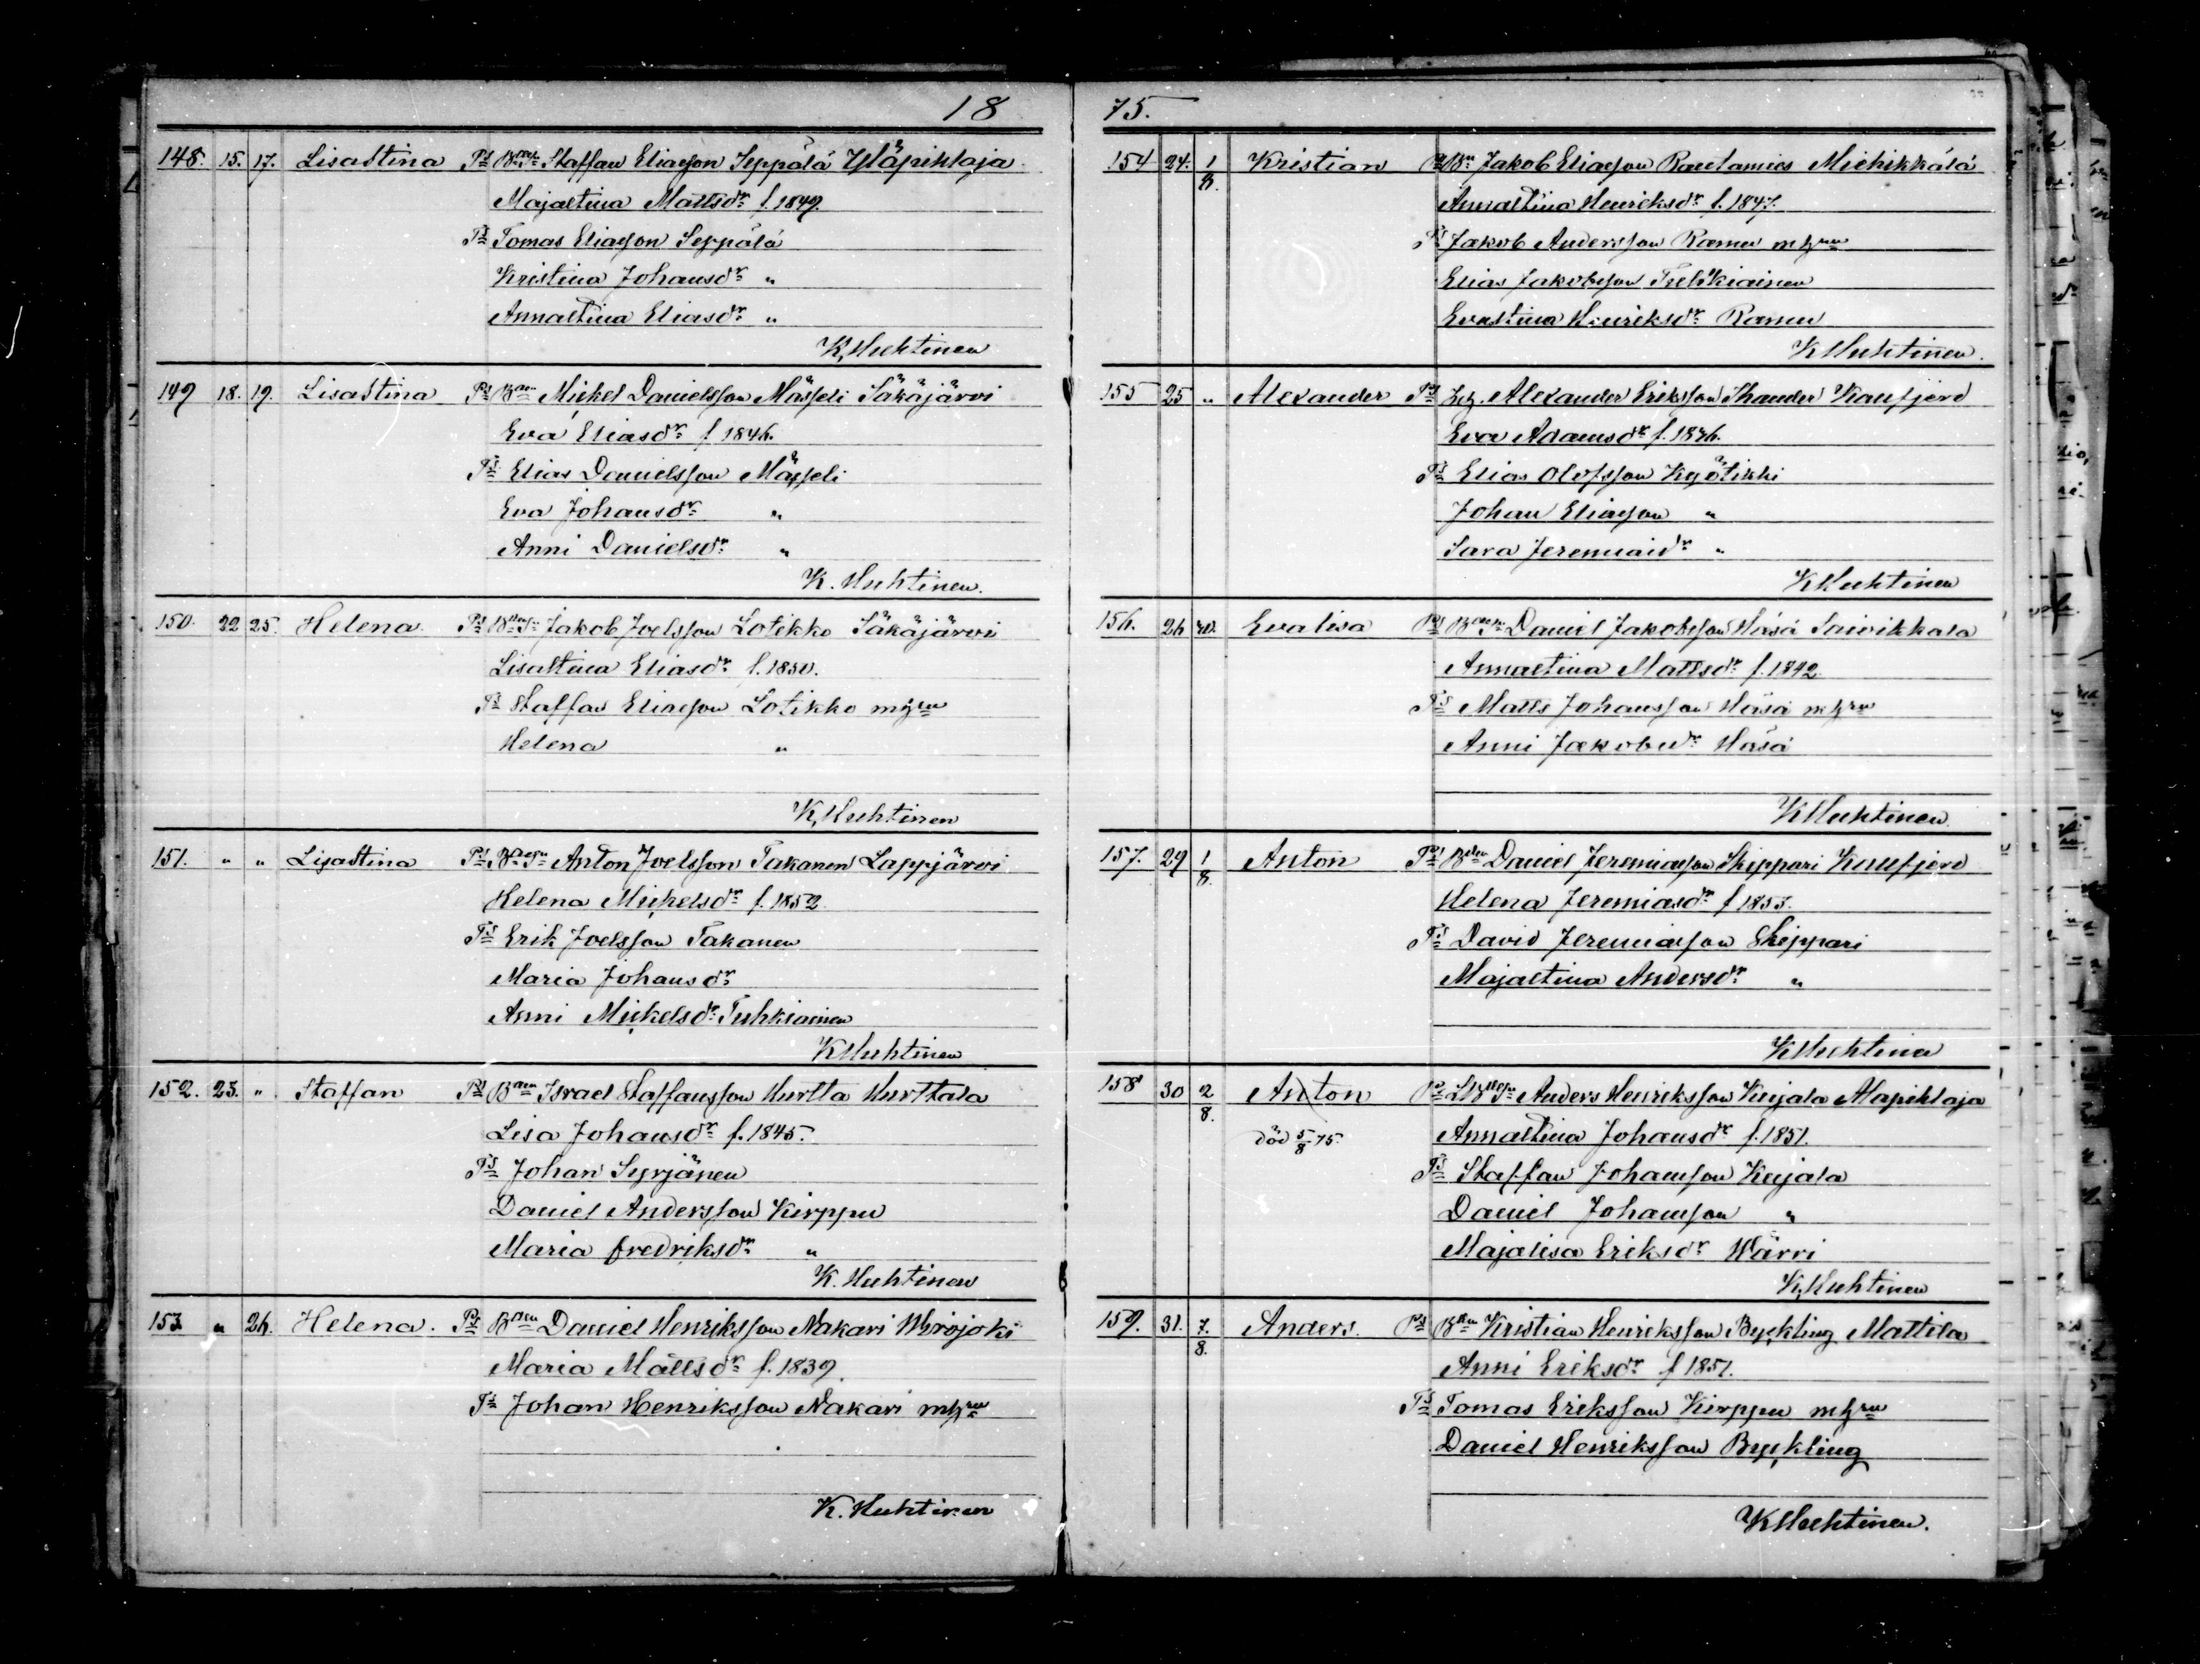 18
148. 15. 17. Lisastina Ps Bnsn Staffan Eliasson Seppälä Yläpihlaja
Majastina Mattsdr f. 1849.
Ts Tomas Eliasson Seppälä
Kristina Johansdr "
Annastina Eliasdr "
K. Huhtinen
149 18. 19. Lisastina Ps Bn Mickel Danielsson Mässeli Säkäjärvi
Eva Eliasdr f 1846.
Ts Elias Danielsson Mässeli
Eva Johansdr "
Anni Danielsdr "
K. Huhtinen.
150. 22 25. Helena Ps Jakob Joelsson Lotikko Säkäjärvi
Lisastina Eliasdr f. 1850.
Ts Staffan Eliasson Lotikko m hru
Helena "
K. Huhtinen
151. " " Lisastina Ps Anton Joelsson Takanen Lappjärvi
Helena Mickelsdr f. 1852
Ts Erik Joelsson Takanen
Maria Johansdr
Anni Mickelsdr Tuhkiainen
K Huhtinen
152. 23. " Staffan Ps Bn Israel Staffansson Hurtta Hurttala
Lisa Johansdr f. 1845.
Ts Johan Syrjänen
Daniel Andersson Kirppu
Maria Fredriksdr "
K. Huhtinen
153 " 26. Helena. Ps Bn Daniel Henriksson Nakari Wirojoki
Maria Mattsdr f. 1839.
Ts Johan Henriksson Nakari m hru
K. Huhtinen
75.
154 24. 1/8. Kristian Ps Bn Jakob Eliasson Rautamies Miehikkälä
Annastina Henriksdr f. 1847.
Ts Jakob Andersson Ramu m hru
Elias Jakobsson Tuhkiainen
Evastina Henriksdr Ramu
K Huhtinen.
155 25 " Alexander Ps Alexander Eriksson Thauder Kaufjerd
Eva Adamsdr f. 1836.
Ts Elias Olofsson Kyötikki
Johan Eliasson "
Sara Jeremiaidr "
K Huhtinen
156. 26 Evalisa Ps Daniel Jakobsson Häsä Saivikkala
Annastina Mattsdr f. 1842
Ts Matts Johansson Häsä m hru
Anni Jakobsdr Häsä
K Huhtinen.
157. 29 1/8. Anton Ps Bn Daniel Jeremiasson Skippari Kaufjerd
Helena Jeremiasdr f 1853.
Ts David Jeremiasson Skippari
Majastina Andersdr "
K Huhtinen
158 30 2/8. Anton Ps Anders Henriksson Kujala Alapihlaja
död 5/8 75. Annastina Johansdr f. 1851.
Ts Staffan Johansson Kujala
Daniel Johansson "
Majalisa Eriksdr Wärri
K. Huhtinen
159. 31. 7/8. Anders. Ps Bn Kristian Henriksson Byckling Mattila
Anni Eriksdr f 1851.
Ts Tomas Eriksson Kirppu m hru
Daniel Henriksson Byckling
K Huhtinen.